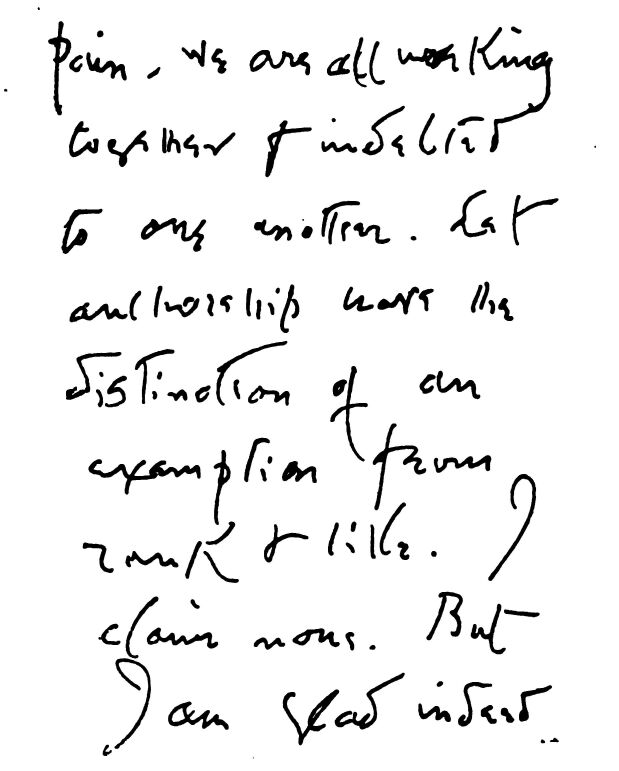 pain, we are all working
together & indebted
to one another. Let
authorship have the
distinction of an
exemption from
rank & like. I
claim none. But
I am glad indeed